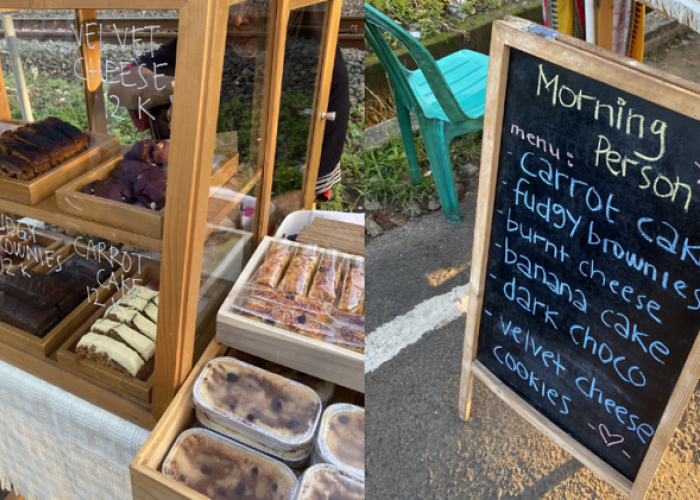 VELVET
CHEESE
12K
FUDGY
BROWNIES
12K
CARROT
CAKE
Morning
Person
menu:
- carrot cake
- fudgy brownies
- burnt cheese
- banana cake
- dark choco
- velvet cheese
cookies